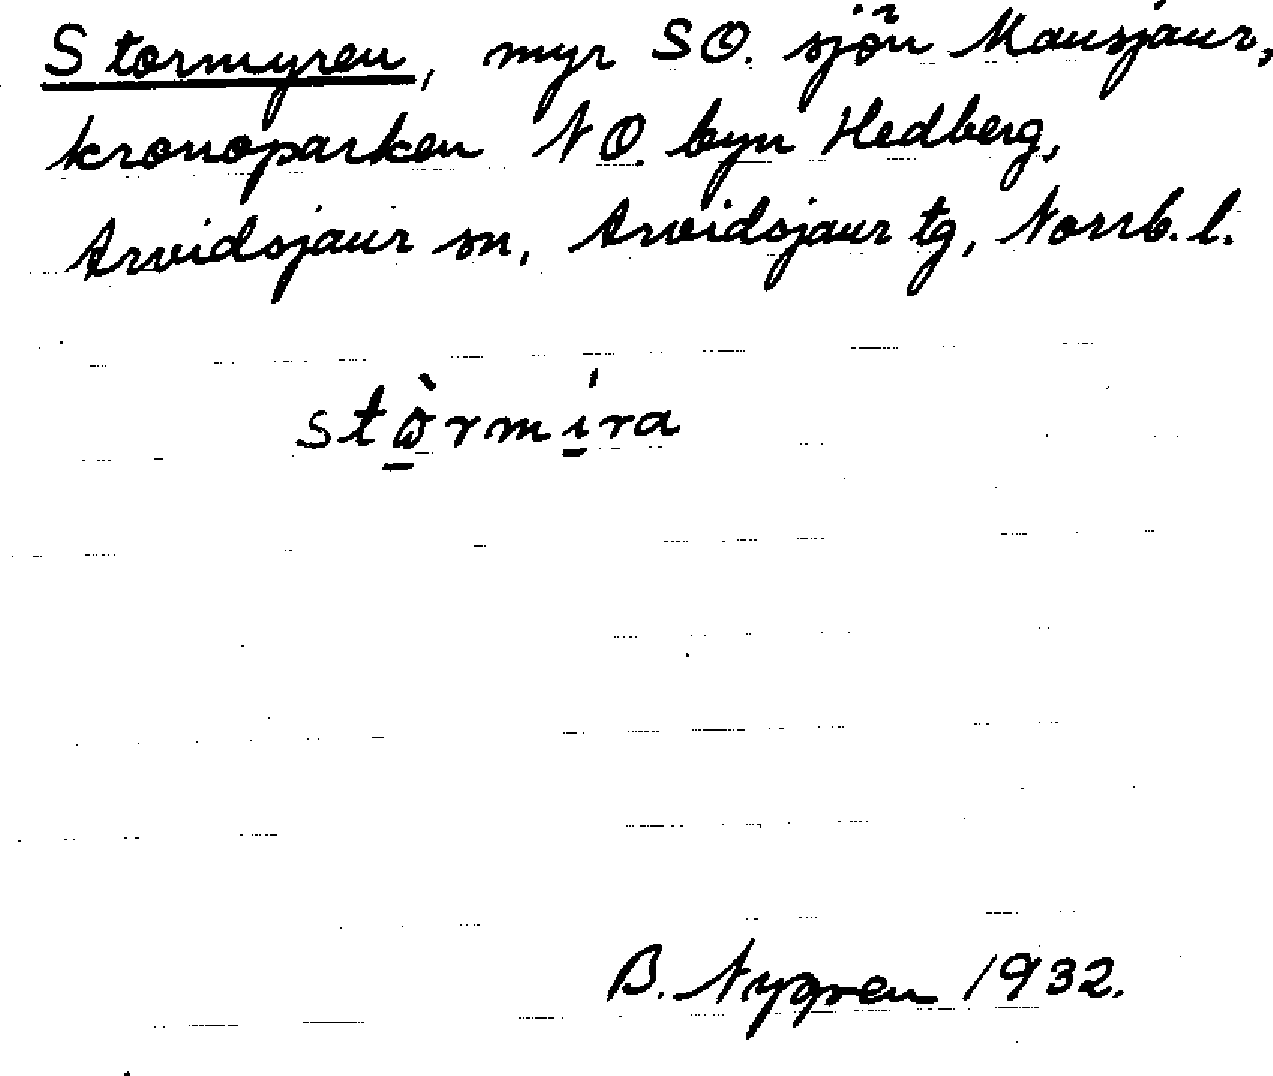 Stormyren, myr SO. sjön Mausjaur,
kronoparken NO. byn Hedberg,
Arvidsjaur sn, Arvidsjaur tg, Norrb. l.
stò̱rmí̱ra
B. Nygren 1932.